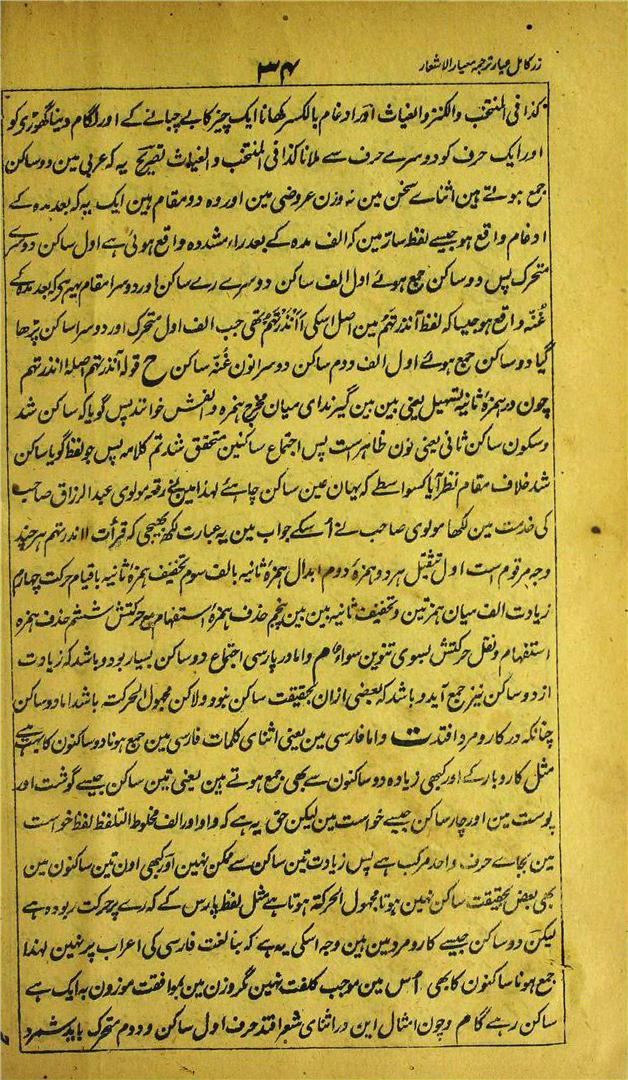 زر کامل عیار ترجمہ معیار الاشعار
۳۴
کذا فی المنتخب والکنز والغیاث اور ادغام بالکسر کھانا ایک چیز کا بے چبانے کے اور لگام دینا گھوڑی کو
اور ایک حرف کو دوسرے حرف سے ملانا کذا فی المنتخب والغیاث تصریح یہ کہ عربی مین دو ساکن
جمع ہوتے ہین اثناے سخن مین نہ وزن عروضی مین اور وہ دو مقام ہین ایک یہ کہ بعد مدہ کے
ادغام واقع ہو جیسے لفظ سارّ مین کہ الف مدہ کے بعد راء مشددہ واقع ہوئی ہے اول ساکن دوسرے
متحرک پس دو ساکن جمع ہوئے اول الف ساکن دوسرے رے ساکن اور دوسرا مقام یہ ہے کہ بعد مدہ کے
غُنّہ واقع ہو جیسا کہ لفظ آنذرتہم مین اصل اسکی أأنذرتہم تھی جب الف اول متحرک اور دوسرا ساکن پڑھا
گیا دو ساکن جمع ہوئے اول الف دوم ساکن دوسرا نون غُنّہ ساکن ح قولہ آنذرتہم اصلہ أانذرتہم
چون در ہمزۂ ثانیہ تسہیل یعنی بین بین گیرند ای میان مخرج ہمزہ و الفش خوانند پس گویا کہ ساکن شد
و سکون ساکن ثانی یعنی نون ظاہر است پس اجتماع ساکنین متحقق شد تم کلامہ پس جو لفظ گویا ساکن
شد خلاف مقام نظر آیا کسواسطے کہ یہان عین ساکن چاہئے لہذا مین نے رقعہ مولوی عبد الرزاق صاحب
کی خدمت مین لکھا مولوی صاحب نے اُسکے جواب مین یہ عبارت لکھ بھیجی کہ قرأت أانذرتہم ہر چند
وجہ مرقوم است اول تثقیل ہر دو ہمزہ دوم ابدال ہمزۂ ثانیہ بالف سوم تخفیف ہمزۂ ثانیہ با قیام حرکت چہارم
زیادت الف میان ہمزتین و تخفیف ثانیہ بین بین پنجم حذف ہمزۂ استفہام مع حرکتش ششم حذف ہمزہ
استفہام و نقل حرکتش بسوی تنوین سواءٌ م و اما در پارسی اجتماع دو ساکن بسیار بود و باشد کہ زیادت
از دو ساکن نیز جمع آید و باشد کہ بعضی ازان بحقیقت ساکن نبود و لاکن مجہول الحرکت باشد اما دو ساکن
چنانکہ در کار و مرد افتد ت و اما فارسی مین یعنی اثنای کلمات فارسی مین جمع ہونا دو ساکنون کا بہت ہے
مثل کار و بار کے اور کبھی زیادہ دو ساکنون سے بھی جمع ہوتے ہین یعنی تین ساکن جیسے گوشت اور
پوست مین اور چار ساکن جیسے خواست مین لیکن حق یہ ہے کہ واو اور الف مخلوط التلفظ لفظ خواست
مین بجاے حرف واحد مرکب ہے پس زیادت تین ساکن سے ممکن نہین اور کبھی اون تین ساکنون مین
بھی بعض بحقیقت ساکن نہین ہوتا مجہول الحرکۃ ہوتا ہے مثل لفظ پارس کے کہ رے پر حرکت ربودہ ہے
لیکن دو ساکن جیسے کار و مرد مین ہین وجہ اسکی یہ ہے کہ بنا لغت فارسی کی اعراب پر نہین لہذا
جمع ہونا ساکنون کا بھی اُس مین موجب کلفت نہین مگر وزن مین بموافقت موزون بہ ایک ہے
ساکن رہے گا م و چون امثال این در اثنای شعر افتد حرف اول ساکن و دوم متحرک باید شمرد